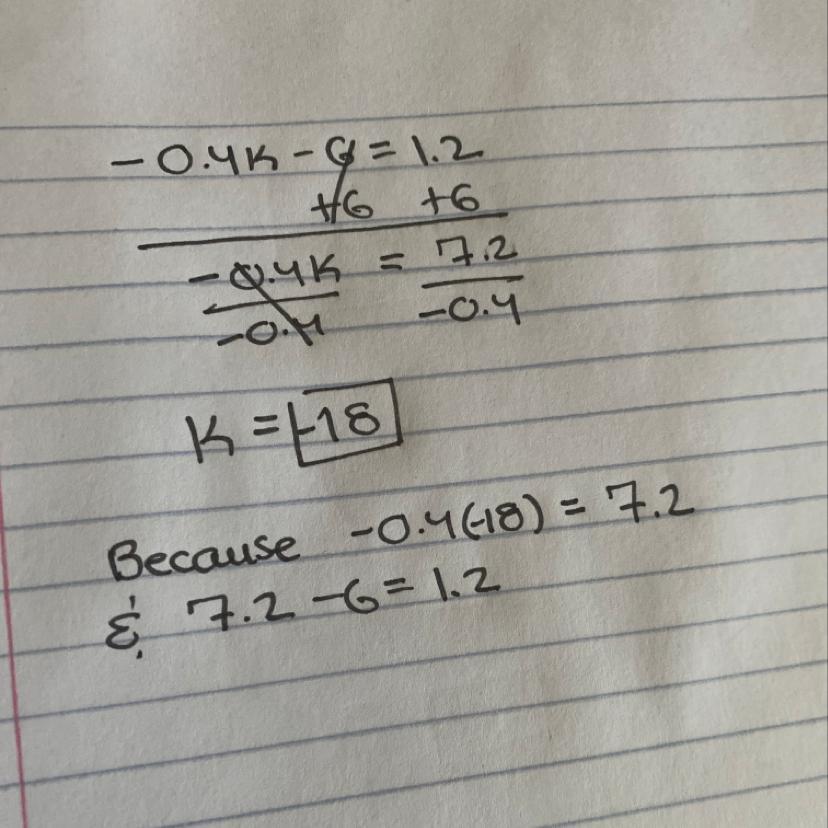 -0.4K - 6 = 1.2
+6 +6
-0.4K = 7.2
-0.4 -0.4
K = -18
Because -0.4(-18) = 7.2
& 7.2 - 6 = 1.2